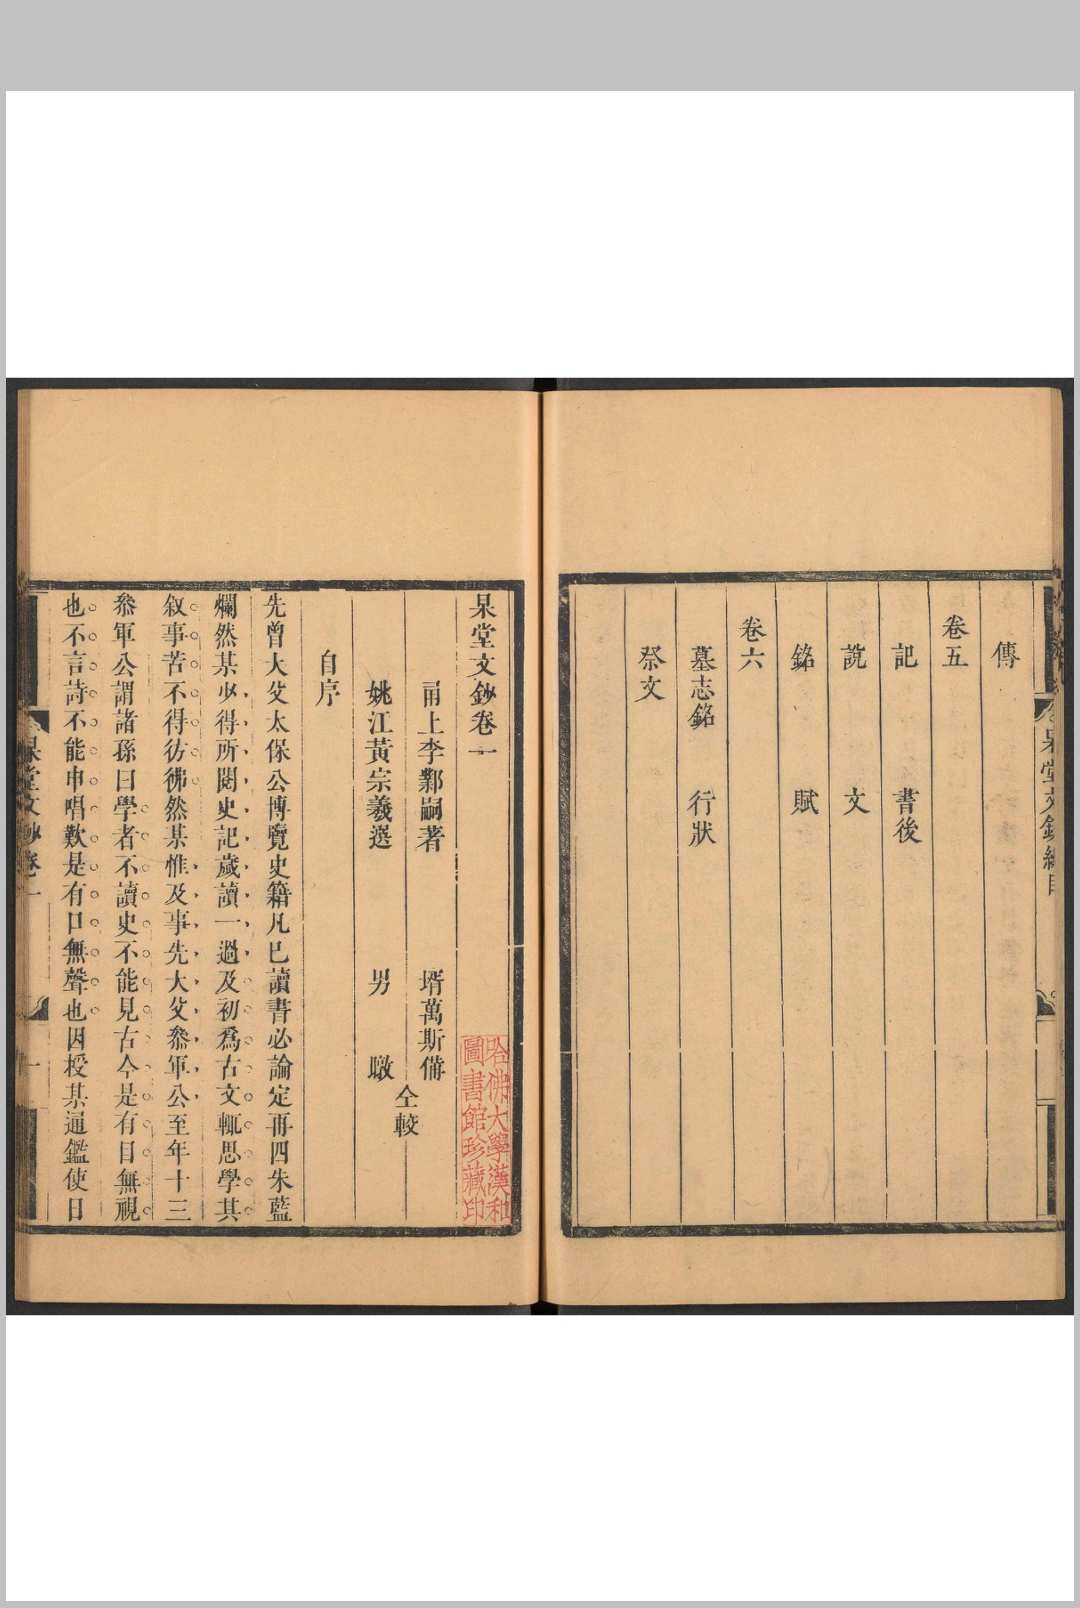 傳
卷五
記 書後
說 文
銘 賦
卷六
墓志銘 行狀
祭文
杲堂文鈔卷一
甬上李鄴嗣著 壻萬斯備
姚江黃宗羲選 男 暾 仝較
自序
先曾大父太保公博覽史籍凡已讀書必論定再四朱藍
爛然某少得所閱史記歲讀一過及初爲古文輒思學其
叙事苦不得彷彿然某惟及事先大父叅軍公至年十三
叅軍公謂諸孫曰學者不讀史不能見古今是有目無視
也不言詩不能申唱歎是有口無聲也因授某通鑑使日
杲堂文鈔卷一
一
哈佛大學漢和
圖書館珍藏印